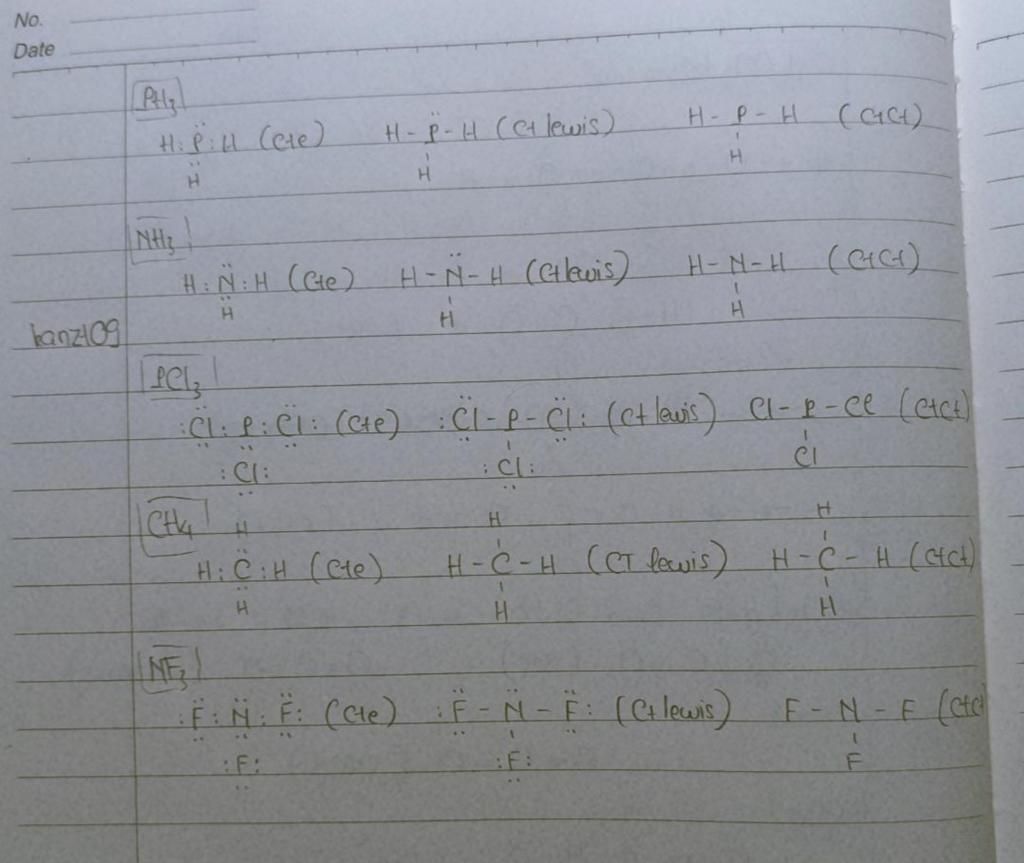 No.
Date
PH3
H : P̈ : H (Cte) H - P̈ - H (Ct lewis) H - P - H (CtCt)
H H H
NH3
H : N̈ : H (Cte) H - N̈ - H (Ct lewis) H - N - H (CtCt)
H H H
kanz109
PCl3
:Cl : P : Cl: (Cte) :Cl - P - Cl: (Ct lewis) Cl - P - Cl (CtCt)
:Cl: :Cl: Cl
CH4
H H H
H : C : H (Cte) H - C - H (CT lewis) H - C - H (CtCt)
H H H
NF3
:F : N̈ : F: (Cte) :F - N̈ - F: (Ct lewis) F - N - F (CtCt
:F: :F: F